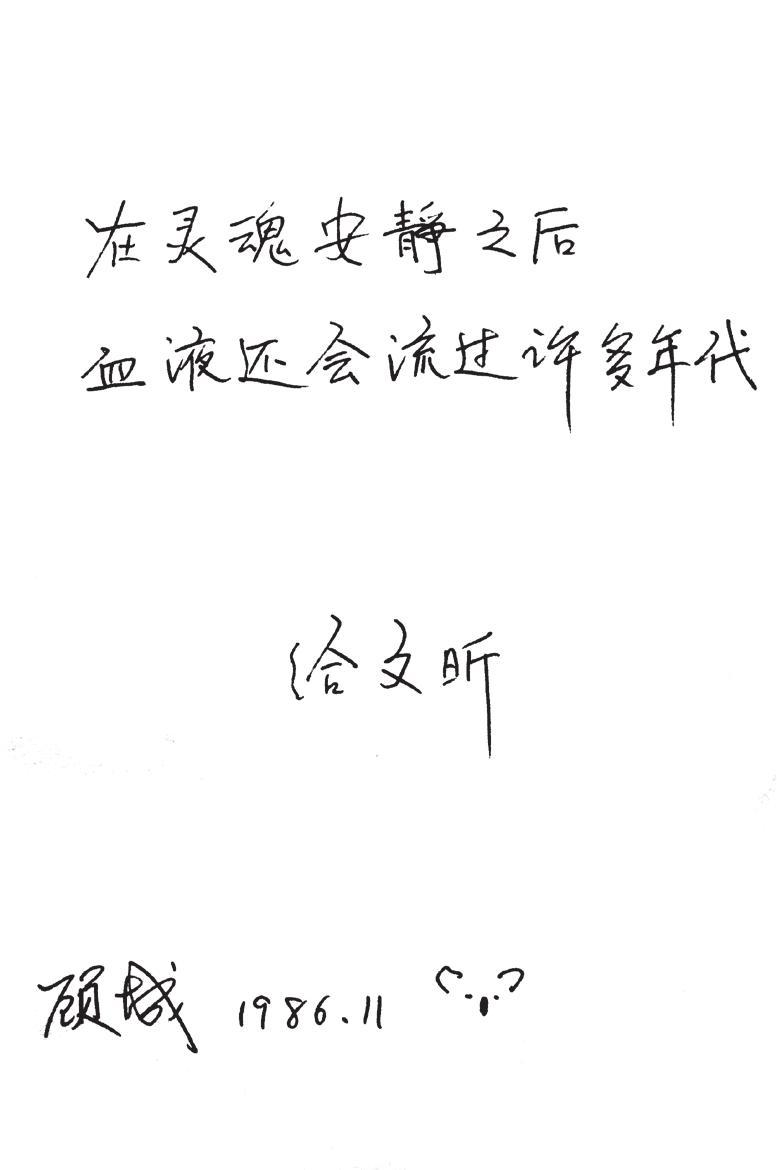 在灵魂安静之后
血液还会流过许多年代
给文昕
顾城 1986.11